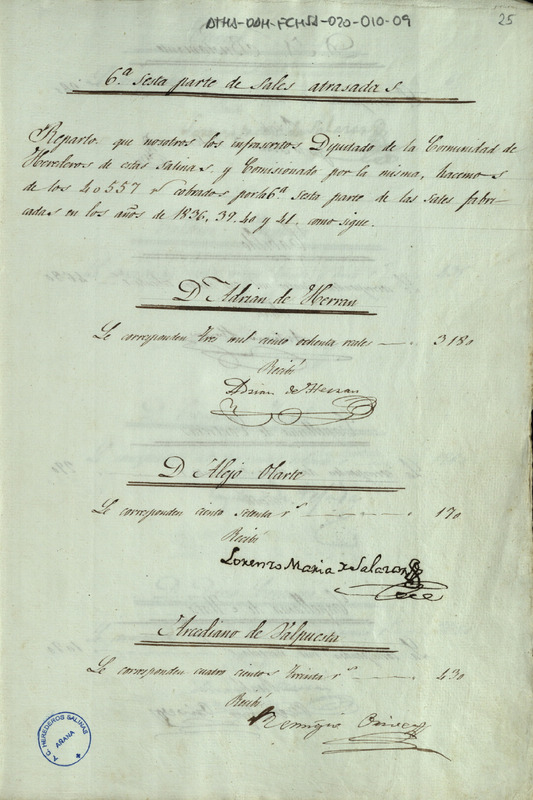 ATHA-DAH-FCHSS-020-010-09
25
6.ª sesta parte de sales atrasadas
Reparto que nosotros los infrascritos Diputado de la Comunidad de
Herederos de estas Salinas, y Comisionado por la misma, hacemos
de los 40557 r.s cobrados por la 6.ª sesta parte de las sales fabri-
cadas en los años de 1836, 39, 40 y 41, como sigue.
D. Adrian de Herran
Le corresponden tres mil ciento ochenta reales — 3180
Recibí
Adrian de Herran
D. Alejo Olarte
Le corresponden ciento setenta r.s — 170
Recibí
Lorenzo Maria de Salazar
Arcediano de Valpuesta
Le corresponden cuatro cientos treinta r.s — 430
Recibí
Remigio
A. C. HEREDEROS SALINAS
AÑANA